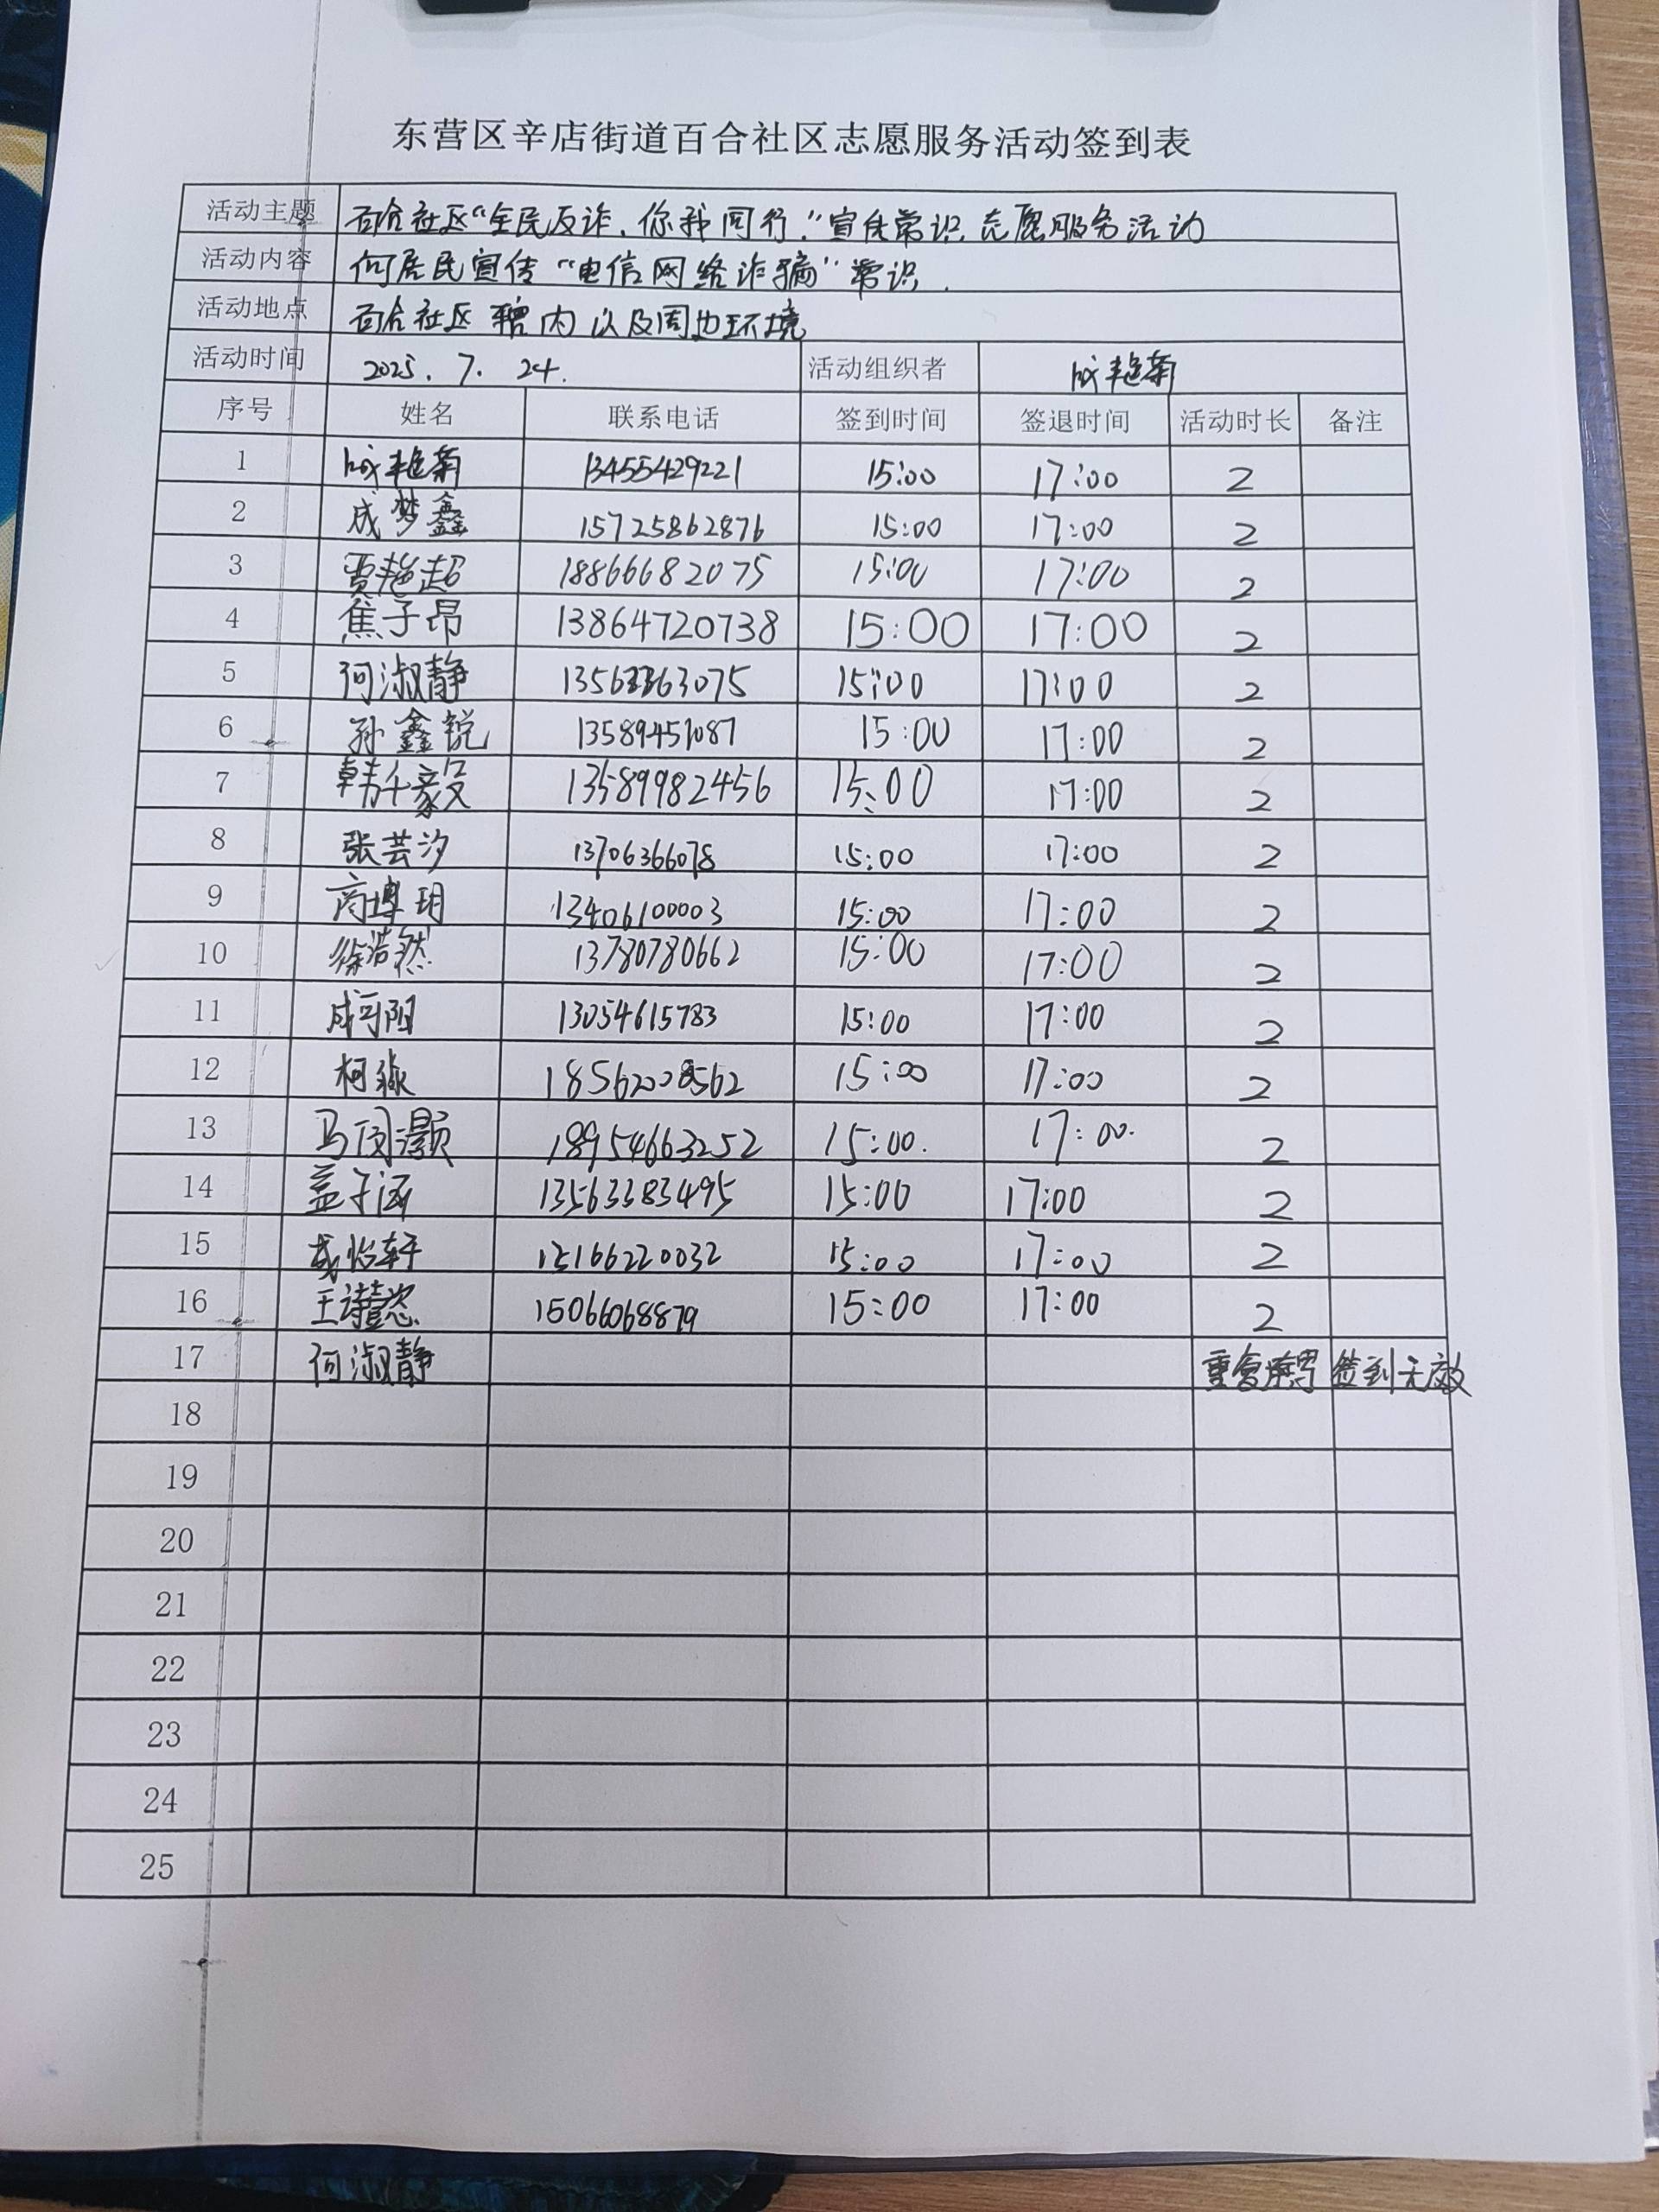 东营区辛店街道百合社区志愿服务活动签到表
活动主题 百合社区“全民反诈,你我同行,”宣传常识志愿服务活动
活动内容 向居民宣传“电信网络诈骗”常识.
活动地点 百合社区辖内以及周边环境
活动时间 2025.7.24. 活动组织者 成艳菊
序号 姓名 联系电话 签到时间 签退时间 活动时长 备注
1 成艳菊 13455429221 15:00 17:00 2
2 成梦鑫 15725862876 15:00 17:00 2
3 贾艳超 18866682075 15:00 17:00 2
4 焦子昂 13864720738 15:00 17:00 2
5 何淑静 13563363075 15:00 17:00 2
6 孙鑫锐 13589451087 15:00 17:00 2
7 韩千毅 13589982456 15:00 17:00 2
8 张芸汐 13706366078 15:00 17:00 2
9 商博玥 13406100003 15:00 17:00 2
10 徐浩然 13780780662 15:00 17:00 2
11 成可阳 13054615783 15:00 17:00 2
12 柯淼 18562008562 15:00 17:00 2
13 马闵灏 18954663252 15:00. 17:00. 2
14 盖子涵 13563383495 15:00 17:00 2
15 怡轩 15166220032 15:00 17:00 2
16 王诗懿 15066068879 15:00 17:00 2
17 何淑静 重复 签到无效
18
19
20
21
22
23
24
25